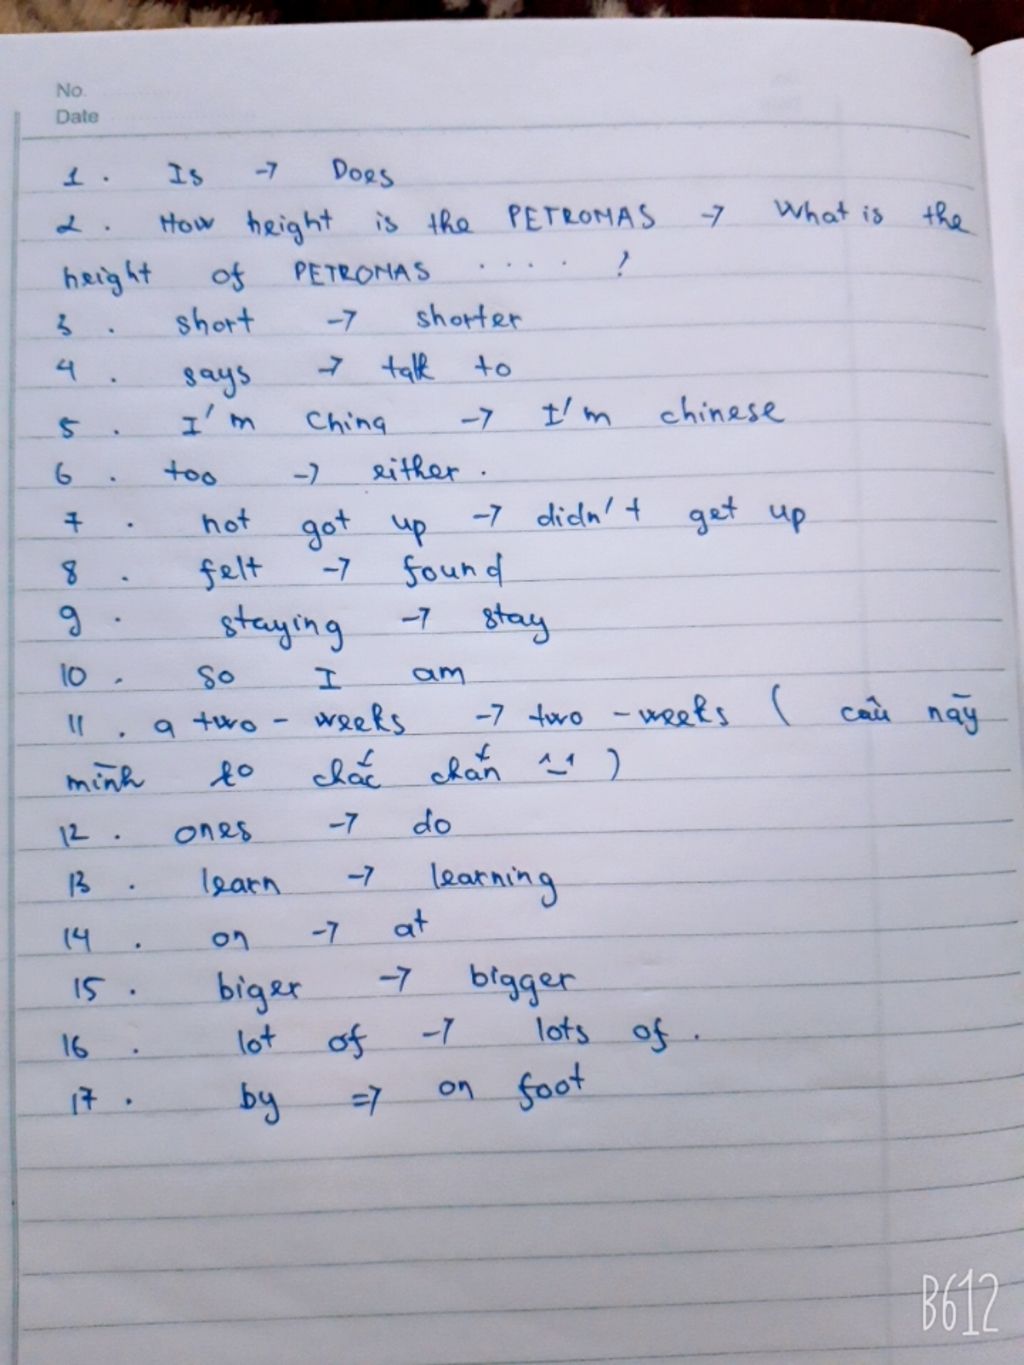 No.
Date
1. Is → Does
2. How height is the PETROMAS → What is the
height of PETROMAS ..... ?
3. short → shorter
4. says → talk to
5. I'm China → I'm chinese
6. too → either.
7. not got up → didn't get up
8. felt → found
9. staying → stay
10. so I am
11. a two-weeks → two-weeks ( câu này
mình ko chắc chắn ^-^ )
12. ones → do
13. learn → learning
14. on → at
15. biger → bigger
16. lot of → lots of.
17. by => on foot
B612